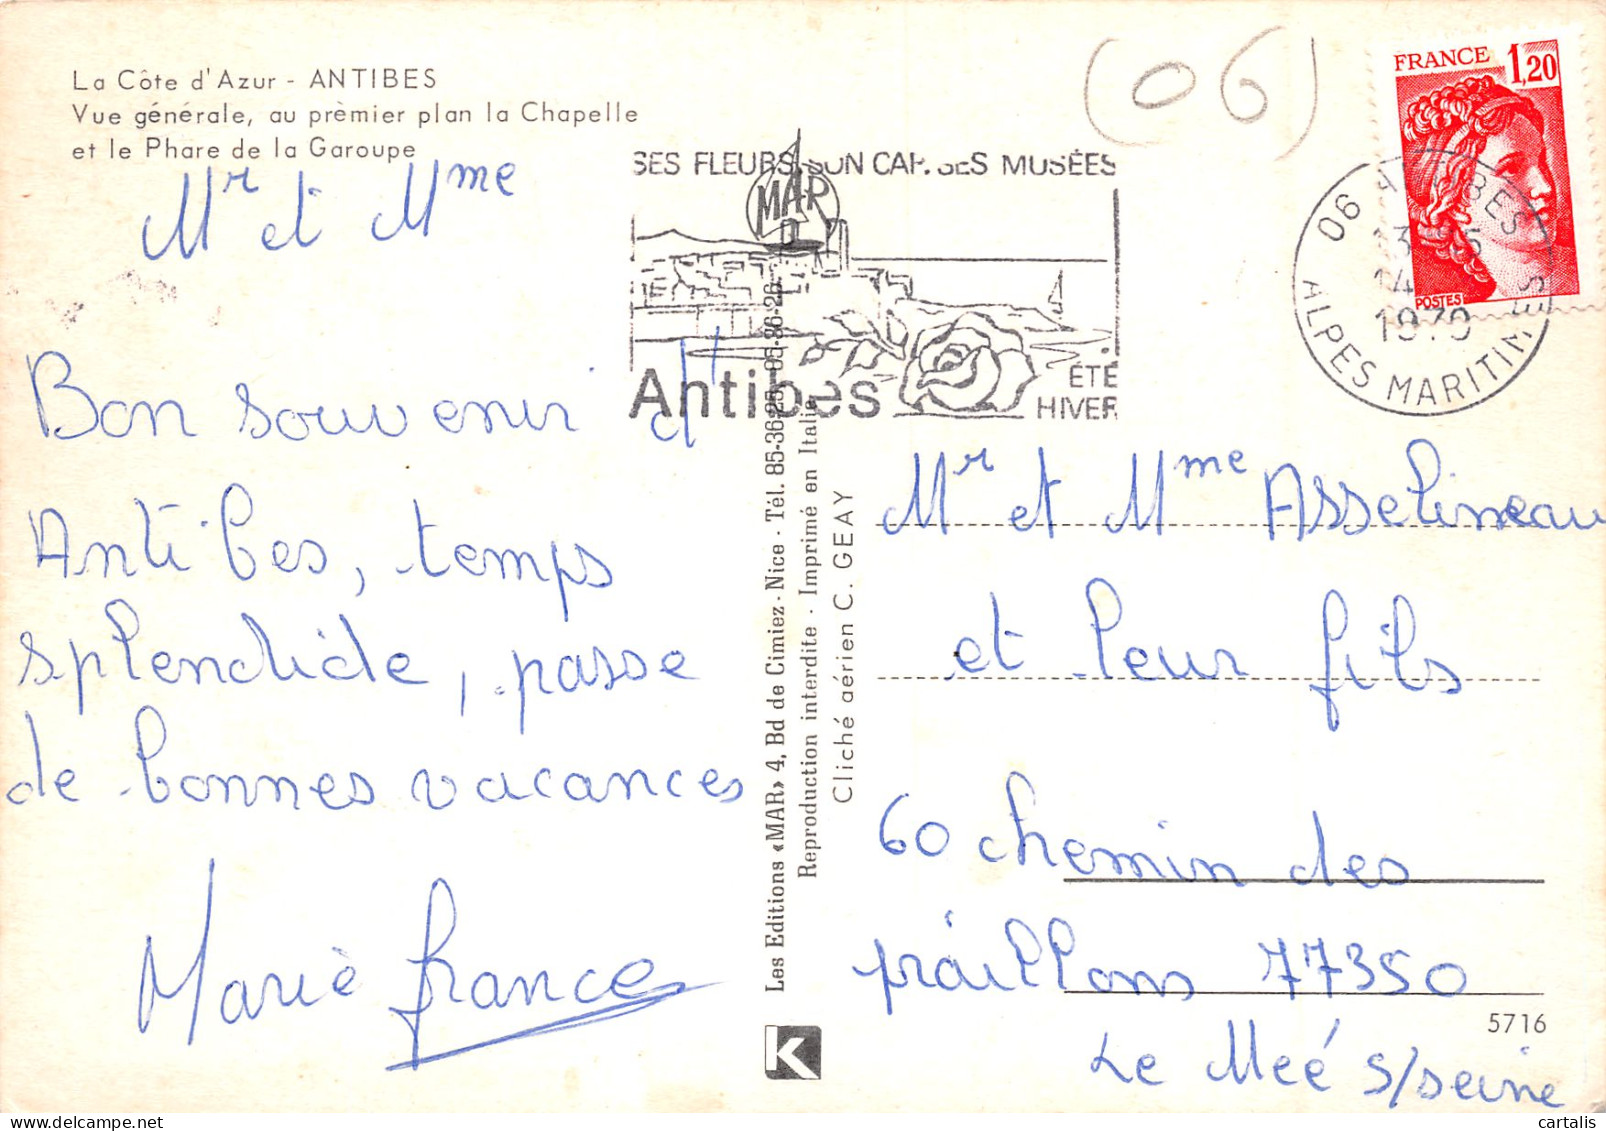 La Côte d'Azur - ANTIBES
Vue générale, au prèmier plan la Chapelle
et le Phare de la Garoupe
Mr et Mme
Bon souvenir d'
Antibes, temps
splendide, passe
de bonnes vacances
Marie france
SES FLEURS SON CAP. SES MUSÉES
MAR
Antibes
ÉTÉ
HIVER
Les Editions «MAR» 4, Bd de Cimiez - Nice - Tél. 85-36-25 85-36-26
Reproduction interdite - Imprimé en Italie
Cliché aérien C. GEAY
K
(06)
FRANCE 1,20
POSTES
06 ANTIBES
14
1979
ALPES MARITIMES
Mr et Mme Asselineau
et leur fils
60 chemin des
praillons 77350
5716
Le Meé s/seine
cartalis
delcampe.net